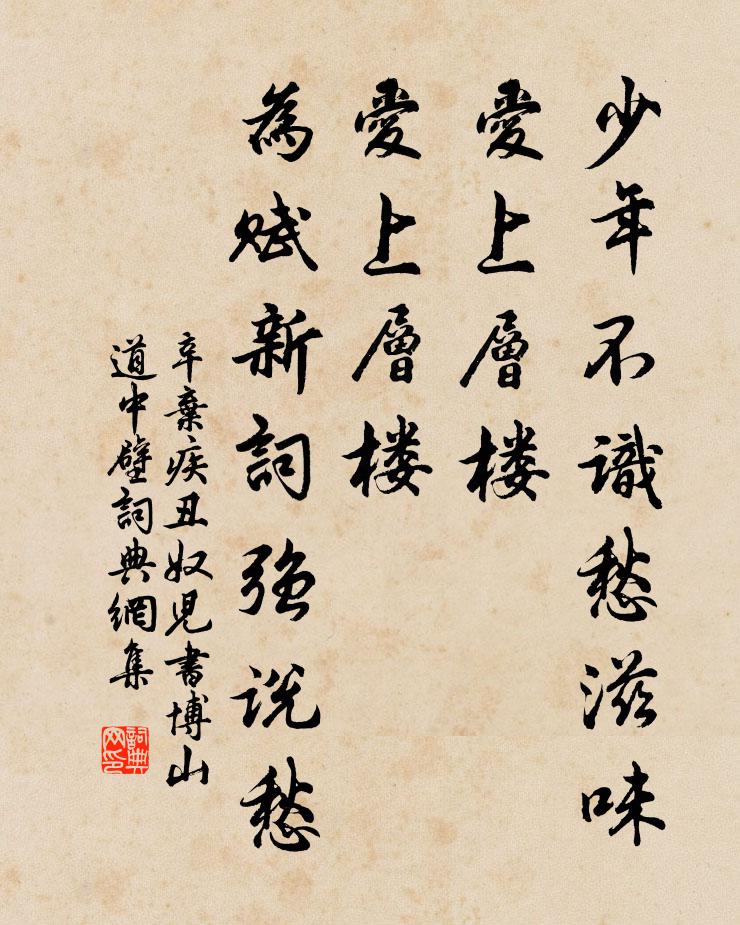 少年不識愁滋味
愛上層楼
愛上層楼
為賦新詞強説愁
辛棄疾丑奴児書博山
道中壁詞典網集
詞典网印